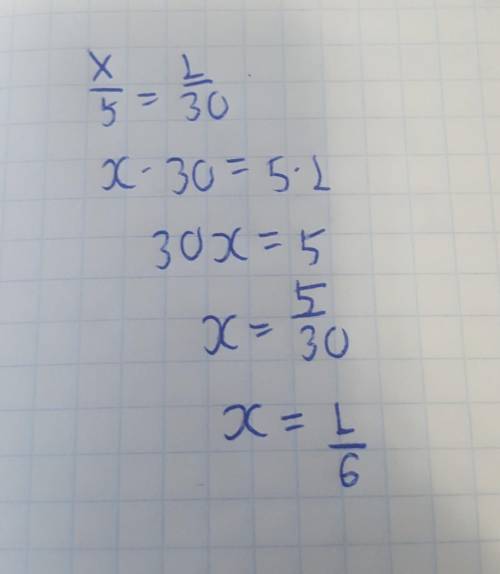 x/5 = 1/30
x · 30 = 5 · 1
30x = 5
x = 5/30
x = 1/6